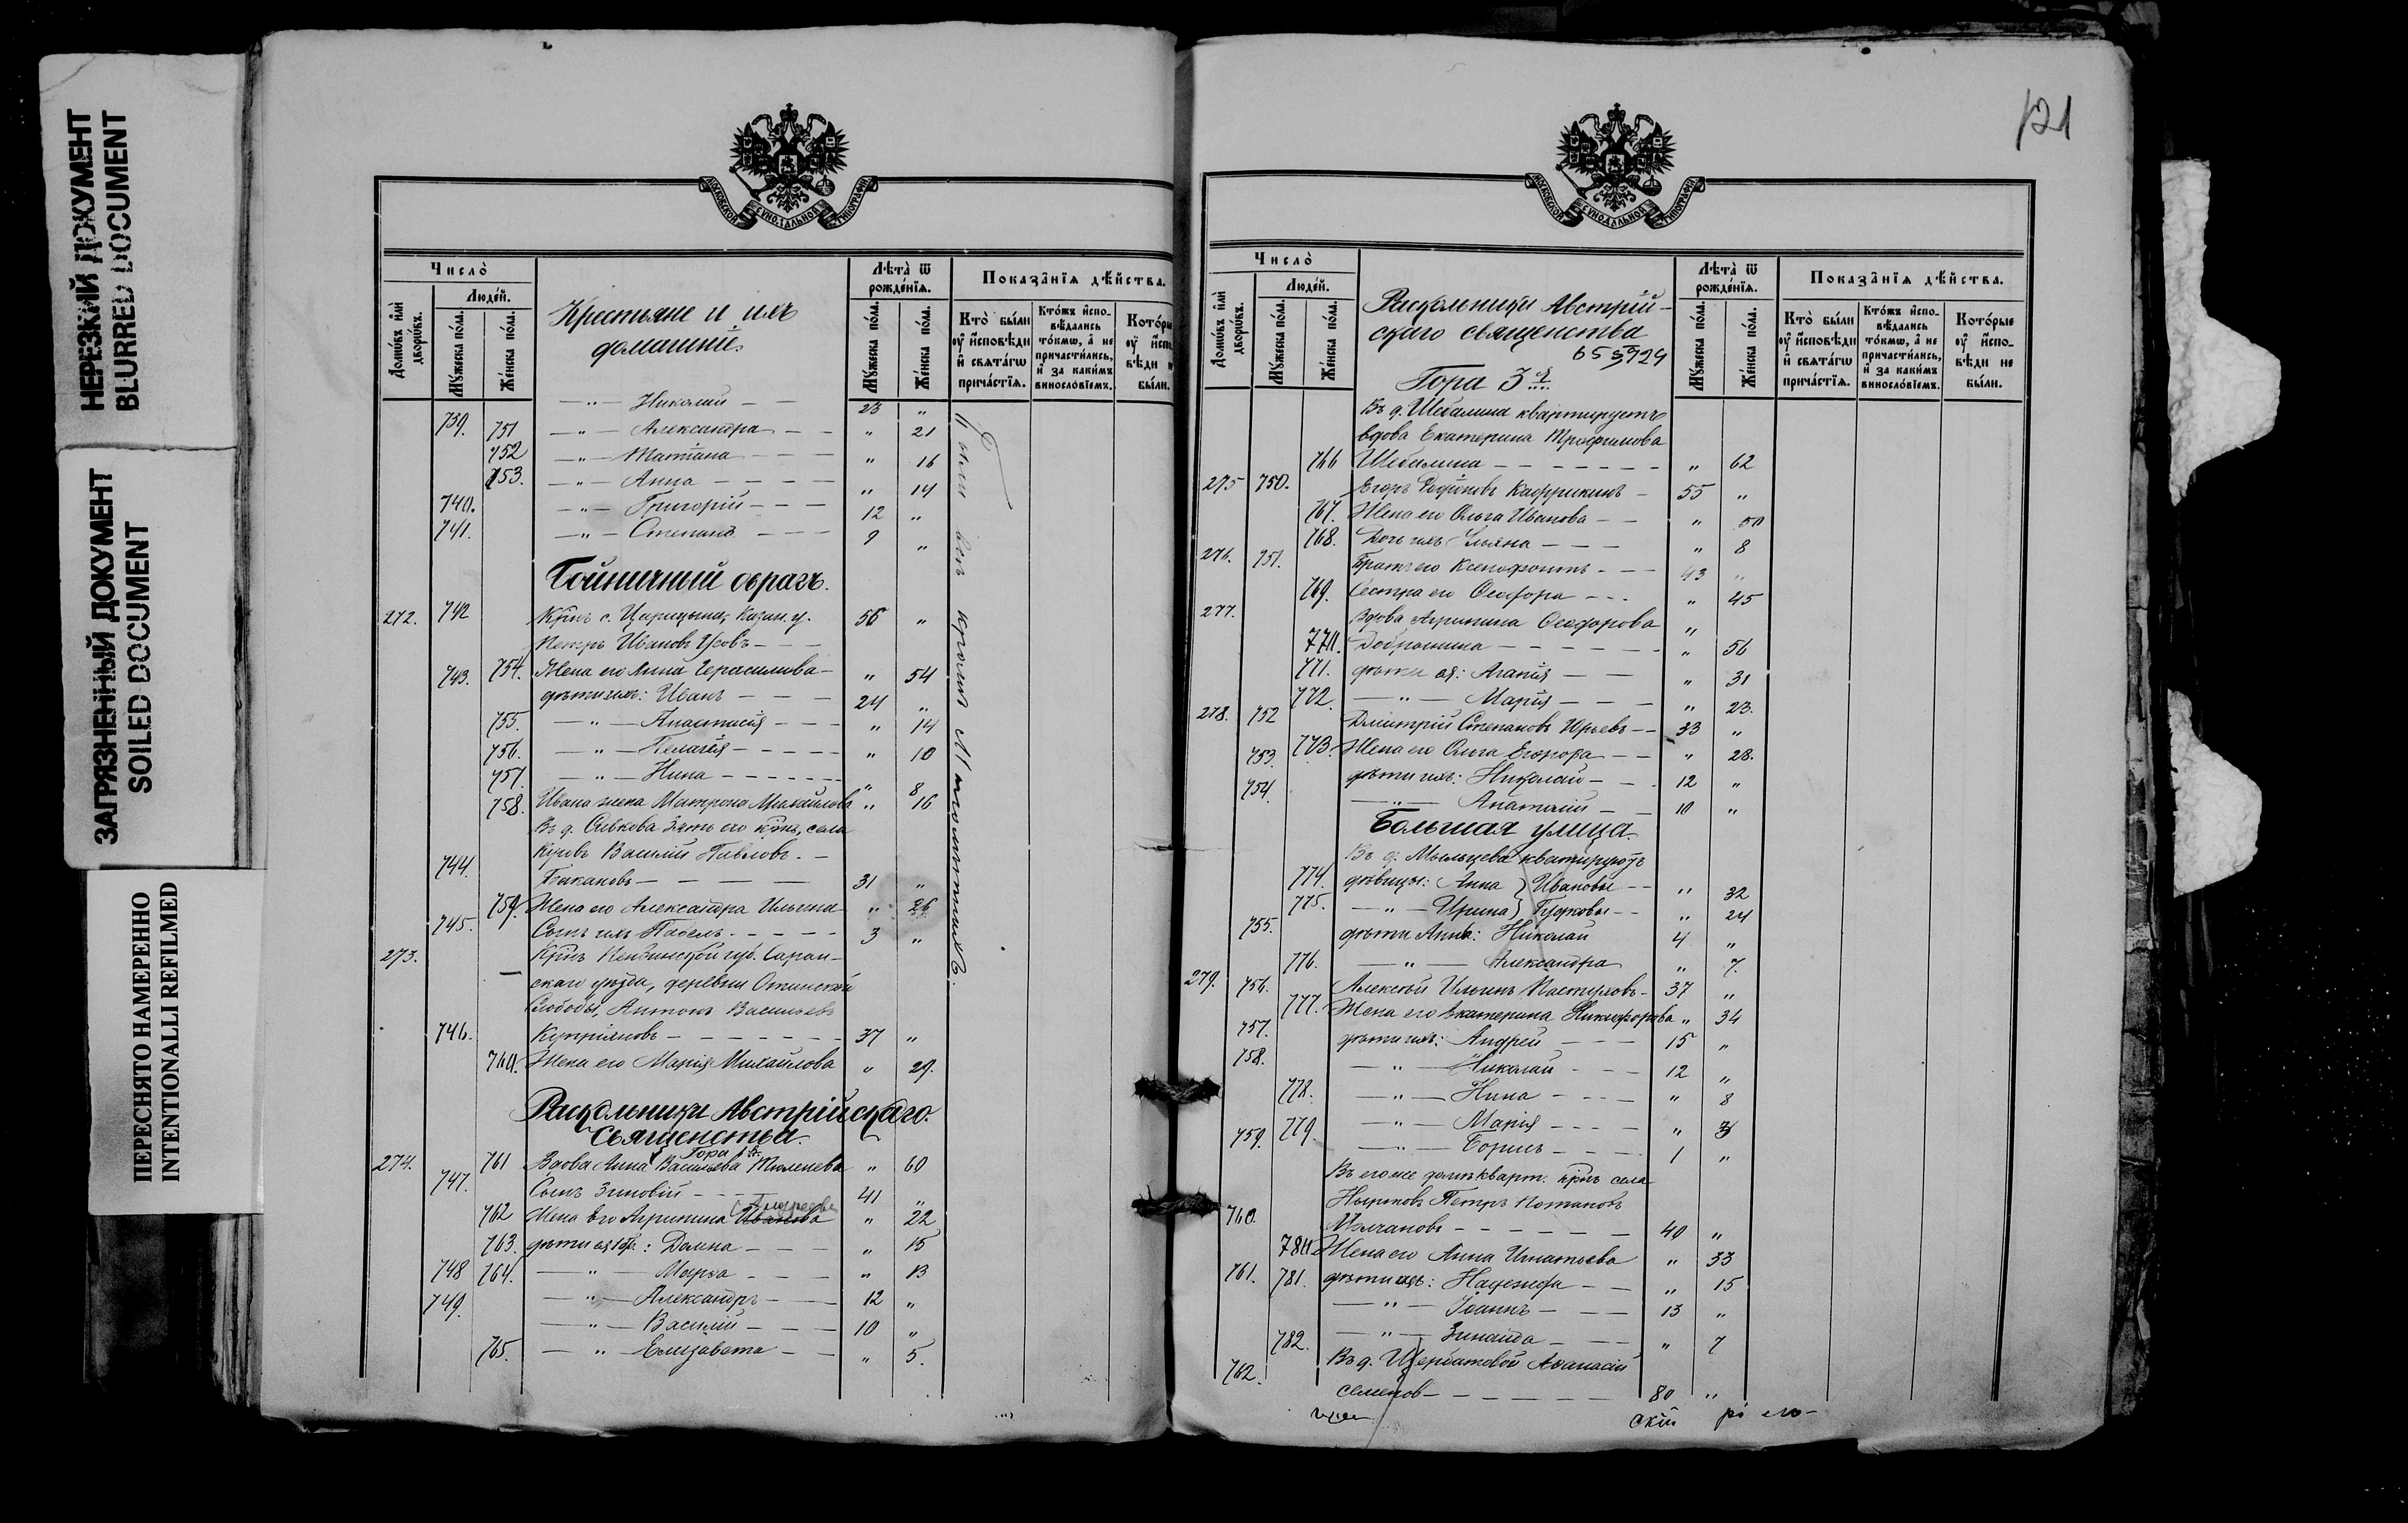 НЕРЕЗКИЙ ДОКУМЕНТ
BLURRED DOCUMENT
ЗАГРЯЗНЕННЫЙ ДОКУМЕНТ
SOILED DOCUMENT
ПЕРЕСНЯТО НАМЕРЕННО
INTENTIONALLI REFILMED
МОСКОВСКОЙ СѴНОДАЛЬНОЙ ТИПОГРАФІИ
Число̀
Домѡ́въ и҆лѝ дворѡ́въ.
Люде́й.
Мꙋ́жеска по́ла.
Же́нска по́ла.
Крестьяне и ихъ
домашніе.
Лѣ́та̀ ѿ рожде́нїѧ.
Мꙋ́жеска по́ла.
Же́нска по́ла.
Показа̑нїѧ дѣ́йства.
Кто̀ бы́ли оу҆ и҆сповѣ́ди и҆ свѧта́гѡ прича́стїѧ.
Кто́жъ и҆спо-вѣ́дались то́кмѡ, а҆ не причасти́лись, и҆ за каки́мъ винослόвїемъ.
739. — " — Николай — — 23 "
751 — " — Александра — — " 21
752 — " — Татіана — — " 16
753. — " — Анна — — — " 14
740. — " — Григорій — — — 12 "
741. — " — Степанъ — — — 9 "
овратъ.
272. 742 Крнъ с. Царицына, Казан. у. 56 "
Петръ Ивановъ Усовъ — —
754. Жена его Анна Герасимова — " 54
743. дѣти ихъ: Иванъ — — — 24 "
755. — " — Анастасія — — — " 14
756. — " — Пелагія — — — " 10
757. — " — Нина — — — " 8
758. Ивана жена Матрона Михайлова " 16
Въ д. Сивкова Зять его крнъ, села
Василій Павловъ. —
744. 31 "
759. Жена его Александра Ильина " 26
745. Сынъ ихъ Павелъ — — — 3 "
273. Крнъ Пензинской губ. Саран-
скаго уѣзда, деревни
Слободы, Антонъ Васильевъ
746. Купріяновъ — — — 37 "
760. Жена его Марія Михайлова " 29.
Раскольники Австрійскаго
Священства.
Гора 1я.
274. 761 Вдова Анна Васильева Тюленева " 60
747. Сынъ Зиновій — — — 41 "
Андреева
762 Жена его Агрипина Иванова " 22
763. дѣти : Домна — — — " 15
748 764. — " — Марѳа — — — " 13
749. — " — Александръ — — 12 "
— " — Василій — — — 10 "
765. — " — Елизавета — — " 5.
121
МОСКОВСКОЙ СѴНОДАЛЬНОЙ ТИПОГРАФІИ
Число̀
Домѡ́въ и҆лѝ дворѡ́въ.
Люде́й.
Мꙋ́жеска по́ла.
Же́нска по́ла.
Раскольники Австрій-
скаго священства
Гора 3я
Лѣ́та̀ ѿ рожде́нїѧ.
Мꙋ́жеска по́ла.
Же́нска по́ла.
Показа̑нїѧ дѣ́йства.
Кто̀ бы́ли оу҆ и҆сповѣ́ди и҆ свѧта́гѡ прича́стїѧ.
Кто́жъ и҆спо-вѣ́дались то́кмѡ, а҆ не причасти́лись, и҆ за каки́мъ винослόвїемъ.
Кото́рые оу҆ и҆спо-вѣ́ди не бы́ли.
Въ д. Шебалина квартируетъ
вдова Екатерина Трофимова
766 Шебалина — — — " 62
275 750. Егоръ Кафрикинъ — 55 "
767. Жена его Ольга Иванова — — " 50
768. Дочь ихъ Ульяна — — — " 8
276. 751. Братъ его Ксенофонтъ — — 43 "
769. Сестра его Ѳеодора — — " 45
277. Вдова Агрипина Ѳеодорова "
770. — — — " 56
771. дѣти ея: Агапія — — " 31
772. — " — Марія — — — " 23.
278. 752 Дмитрій Степановъ Юрьевъ — — 33 "
773. Жена его Ольга Егорова — — " 28.
753. дѣти ихъ: Николай — — 12 "
754. — " — Анатолій — — 10 "
Большая улица.
Въ д. Мыльцева квартируютъ
774. дѣвицы: Анна } Ивановы — — " 32
775. — " — Ирина } — — " 24
755. дѣти Анны: Николай 4 "
776. — " — Александра " 7.
279. 756. Алексѣй Ильинъ Пастуховъ — 37 "
777. Жена его Екатерина Никифорова " 34
757. дѣти ихъ: Андрей — — — 15 "
758. — " — Николай — — — 12 "
778. — " — Нина — — — " 8
779. — " — Марія — — — "
759. — " — Борисъ — — — 1 "
Въ его же домѣ кварт. крнъ села
Петръ Потаповъ
760. Молчановъ — — — 40 "
780. Жена его Анна Игнатьева " 33
781. дѣти ихъ: Надежда — — " 15
761. — " — Іоаннъ — — — 13 "
782. — " — Зинаида — — — " 7
762. Въ д. Щербатовой Аѳанасій
Семенов — — — 80 "
скій